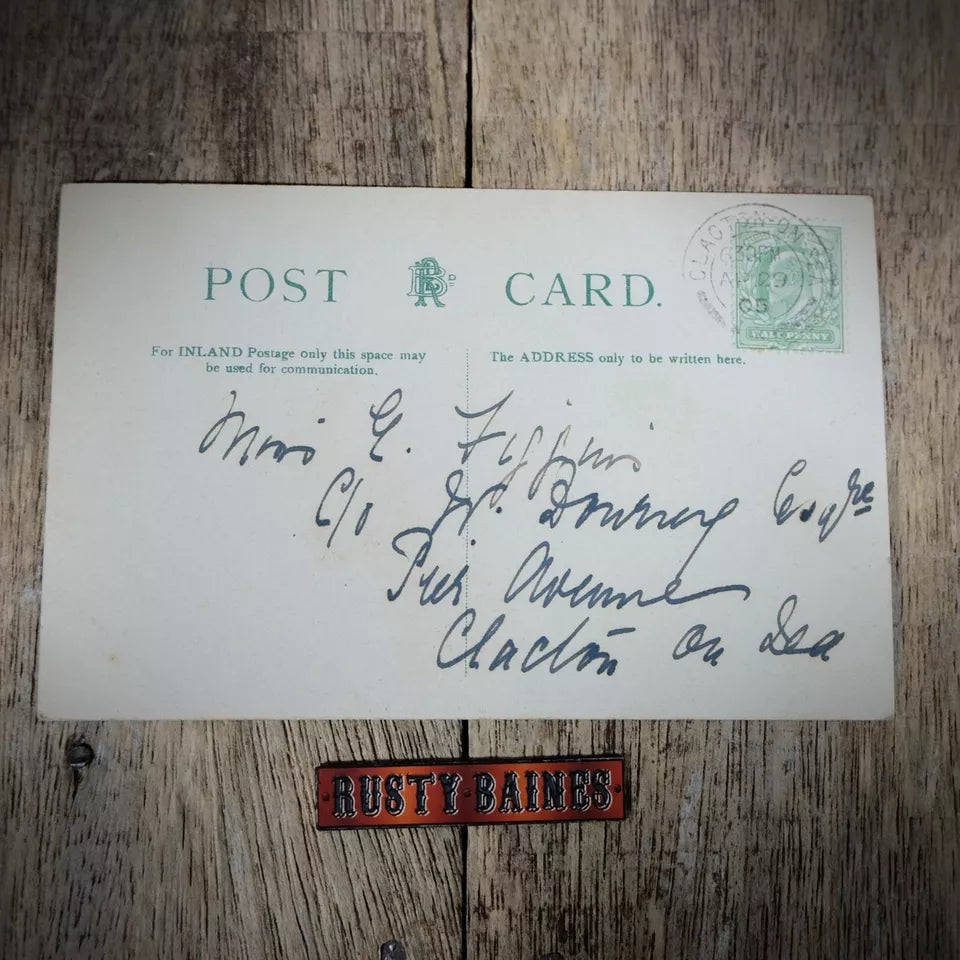 POST CARD.
CLACTON-ON-SEA
630PM
29
HALFPENNY
For INLAND Postage only this space may
be used for communication.
The ADDRESS only to be written here.
Miss G. Figgins
C/o
Esqre
Pier Avenue
Clacton on Sea
RUSTY·BAINES